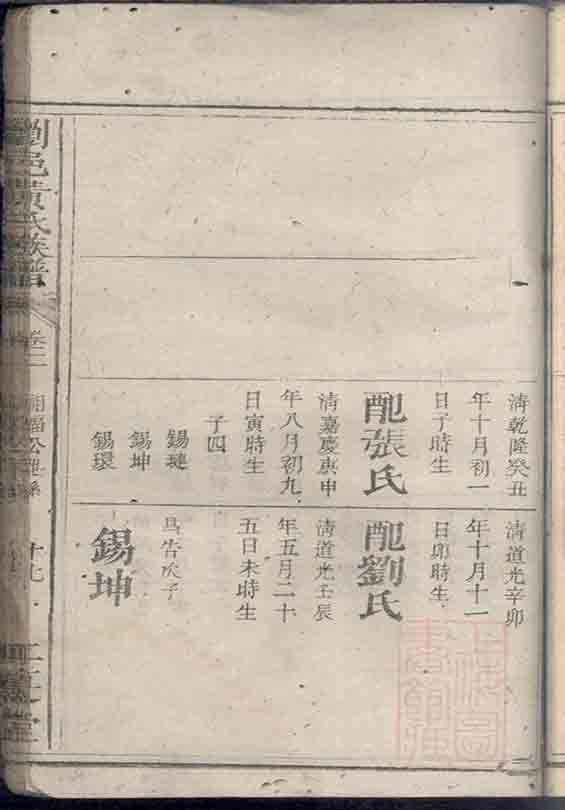 清乾隆癸丑
年十月初一
日丁時生
配張氏
清嘉慶庚申
年八月初九
日寅時生
子四
錫璉
錫坤
錫環
清道光辛卯
年十月十一
日卯時生
配劉氏
清道光壬辰
年五月二十
五日未時生
錫坤
劉邑黃氏族譜
卷二